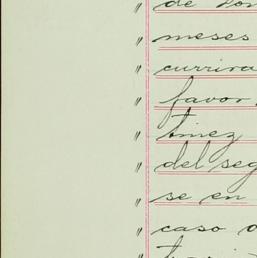 " de
" meses
" currira
" favor.
" timez
" del seg
" se en
" caso